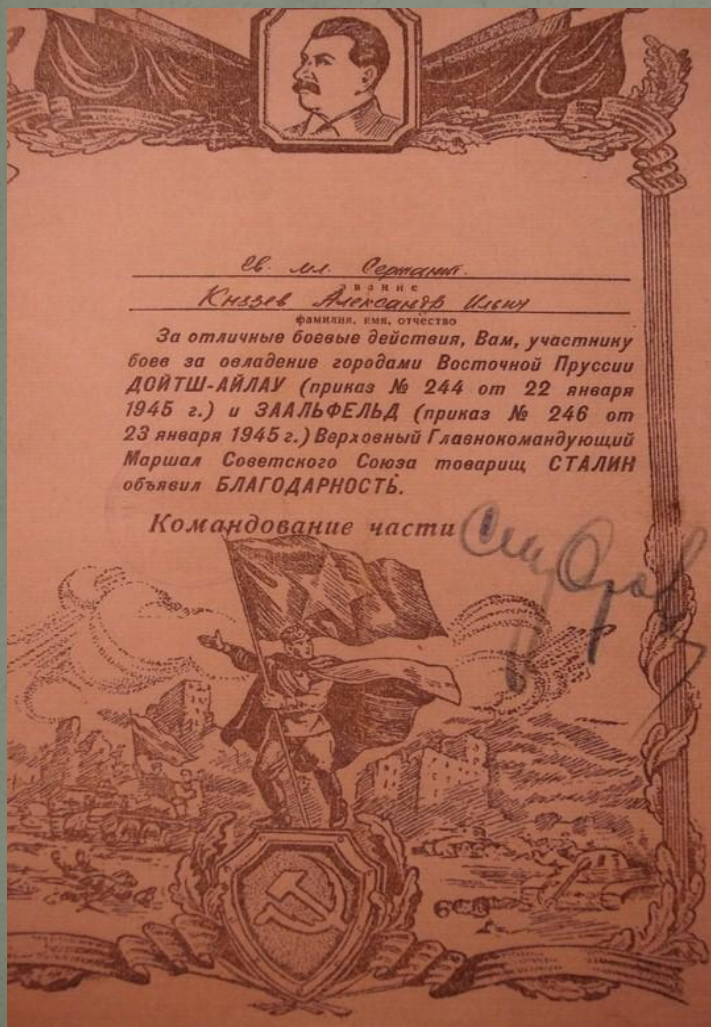 гв. мл. Сержант.
звание
Князев Александр Ильич
фамилия, имя, отчество
За отличные боевые действия, Вам, участнику
боев за овладение городами Восточной Пруссии
ДОЙТШ-АЙЛАУ (приказ № 244 от 22 января
1945 г.) и ЗААЛЬФЕЛЬД (приказ № 246 от
23 января 1945 г.) Верховный Главнокомандующий
Маршал Советского Союза товарищ СТАЛИН
объявил БЛАГОДАРНОСТЬ.
Командование части